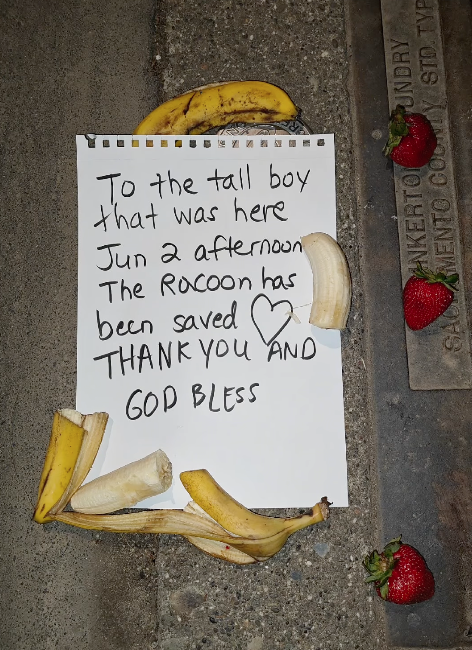 To the tall boy
that was here
Jun 2 afternoon
The Racoon has
been saved
THANK YOU AND
GOD BLESS
NKERTO
UNDRY
SAC
MENTO CO
TY STD. TYP